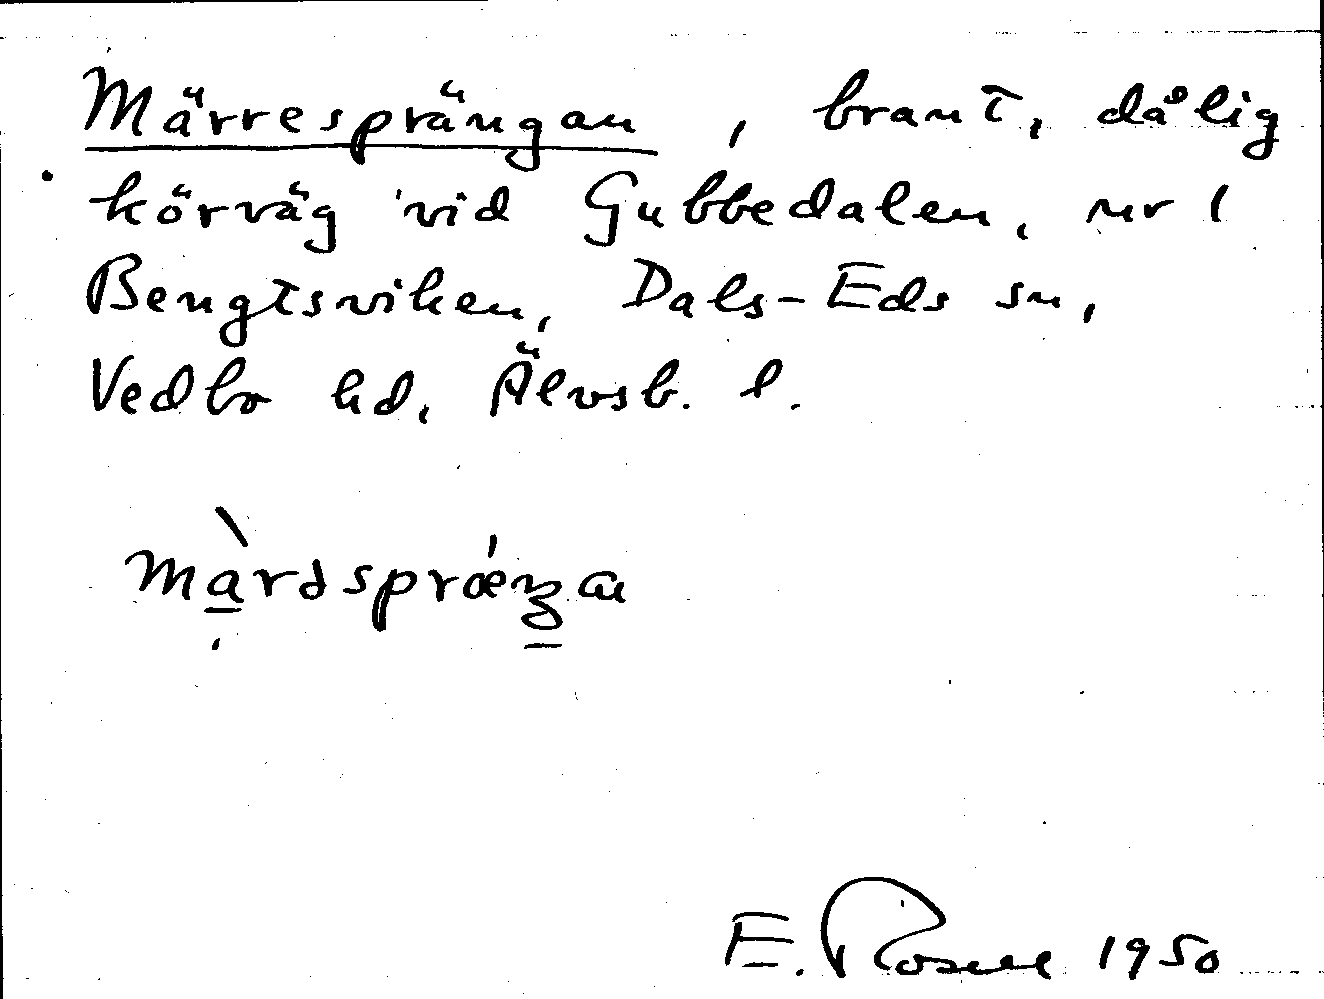 Märresprängan, brant, dålig
körväg vid Gubbedalen, nr 1
Bengtsviken, Dals-Eds sn,
Vedbo hd. Älvsb. l.
E. Rosell 1950